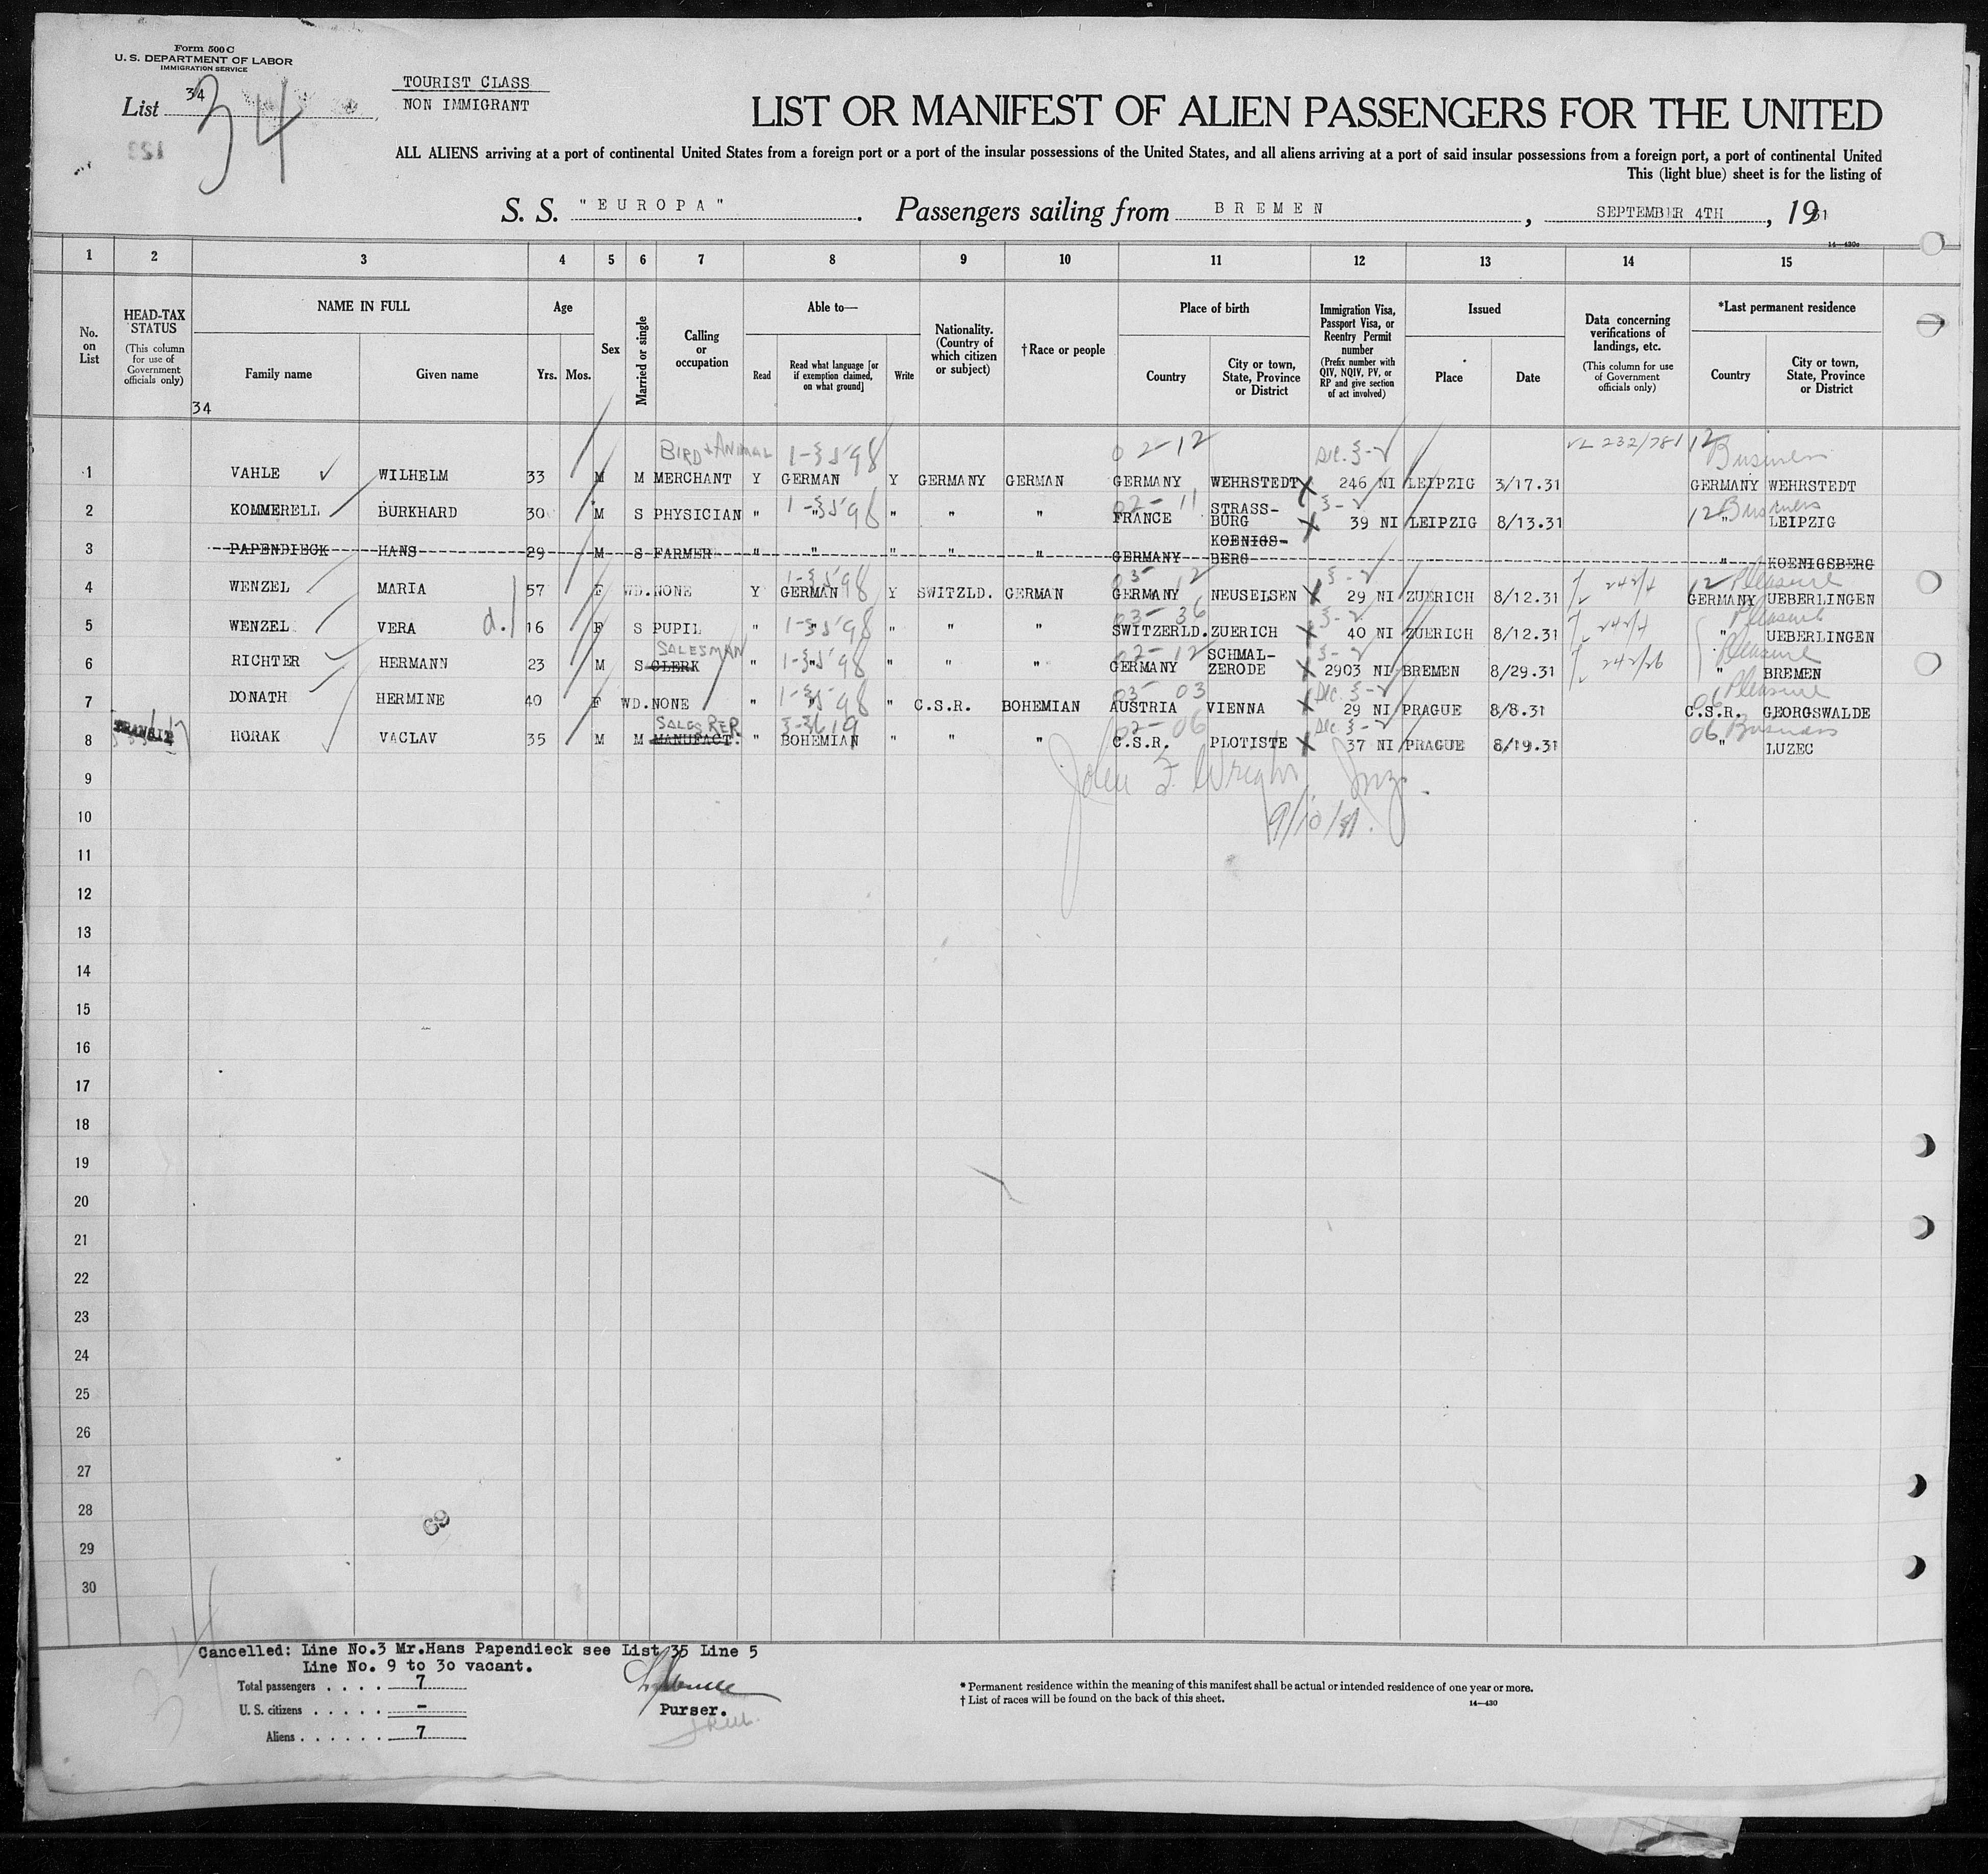 Form 500 C
U. S. DEPARTMENT OF LABOR
IMMIGRATION SERVICE
List 34
34
TOURIST CLASS
NON IMMIGRANT
LIST OR MANIFEST OF ALIEN PASSENGERS FOR THE UNITED
ALL ALIENS arriving at a port of continental United States from a foreign port or a port of the insular possessions of the United States, and all aliens arriving at a port of said insular possessions from a foreign port, a port of continental United
This (light blue) sheet is for the listing of
S. S. "EUROPA". Passengers sailing from BREMEN, SEPTEMBER 4TH, 1931
14—430c
1 2 3 4 5 6 7 8 9 10 11 12 13 14 15
No. on List
HEAD-TAX STATUS (This column for use of Government officials only)
NAME IN FULL
Family name
Given name
Age
Yrs. Mos.
Sex
Married or single
Calling or occupation
Able to—
Read
Read what language [or if exemption claimed, on what ground]
Write
Nationality. (Country of which citizen or subject)
†Race or people
Place of birth
Country
City or town, State, Province or District
Immigration Visa, Passport Visa, or Reentry Permit number (Prefix number with QIV, NQIV, PV, or RP and give section of act involved)
Issued
Place
Date
Data concerning verifications of landings, etc. (This column for use of Government officials only)
*Last permanent residence
Country
City or town, State, Province or District
34
BIRD + ANIMAL 02-12 232/781 12 Business
1 VAHLE WILHELM 33 M M MERCHANT Y GERMAN Y GERMANY GERMAN GERMANY WEHRSTEDT 246 NI LEIPZIG 3/17.31 GERMANY WEHRSTEDT
02-11 12 Business
2 KOMMERELL BURKHARD 30 M S PHYSICIAN " " " " " FRANCE STRASS-BURG 39 NI LEIPZIG 8/13.31 " LEIPZIG
3 PAPENDIECK HANS 29 M S FARMER " " " " " GERMANY KOENIGS-BERG " KOENIGSBERG
03 12 12 Pleasure
4 WENZEL MARIA 57 F WD. NONE Y GERMAN Y SWITZLD. GERMAN GERMANY NEUSELSEN 29 NI ZUERICH 8/12.31 GERMANY UEBERLINGEN
03-36 Pleasure
5 WENZEL VERA 16 F S PUPIL " " " " " SWITZERLD. ZUERICH 40 NI ZUERICH 8/12.31 " UEBERLINGEN
SALESMAN 02-12 Pleasure
6 RICHTER HERMANN 23 M S CLERK " " " " " GERMANY SCHMAL-ZERODE 2903 NI BREMEN 8/29.31 " BREMEN
03 03 06 Pleasure
7 DONATH HERMINE 40 F WD. NONE " " " C.S.R. BOHEMIAN AUSTRIA VIENNA 29 NI PRAGUE 8/8.31 C.S.R. GEORGSWALDE
TRANSIT SALES REP. 02-06 06 Business
8 HORAK VACLAV 35 M M MANUFACT. " BOHEMIAN " " " C.S.R. PLOTISTE 37 NI PRAGUE 8/19.31 " LUZEC
John F. Wright
9/10/31.
9
10
11
12
13
14
15
16
17
18
19
20
21
22
23
24
25
26
27
28
29
30
69
Cancelled: Line No.3 Mr.Hans Papendieck see List 35 Line 5
Line No. 9 to 30 vacant.
Total passengers . . . . 7
U. S. citizens . . . . . -
Aliens . . . . . . 7
Purser.
* Permanent residence within the meaning of this manifest shall be actual or intended residence of one year or more.
† List of races will be found on the back of this sheet.
14—430